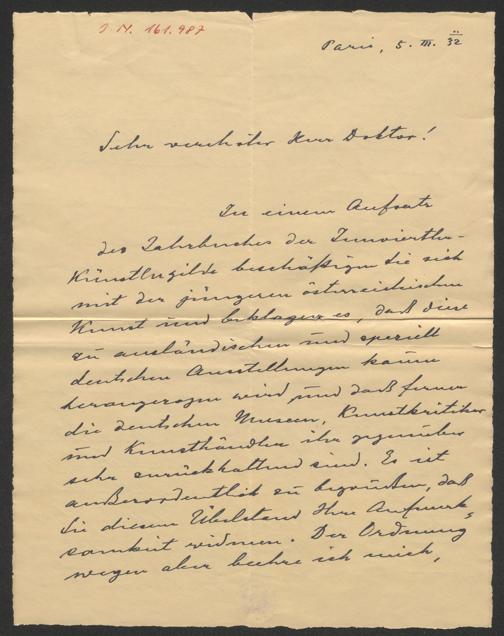 I. N. 161.987
Paris, 5. III. 32
Sehr verehrter Herr Doktor!
In einem Aufsatz
des Jahrbuches der Innviertler-
Künstlergilde beschäftigen Sie sich
mit der jüngeren österreichischen
Kunst und beklagen es, daß diese
zu ausländischen und speziell
deutschen Ausstellungen kaum
herangezogen wird und daß ferner
die deutschen Museen, Kunstkritiker
und Kunsthändler ihr gegenüber
sehr zurückhaltend sind. Es ist
außerordentlich zu begrüßen, daß
Sie diesem Übelstand Ihre Aufmerk-
samkeit widmen. Der Ordnung
wegen aber beehre ich mich,